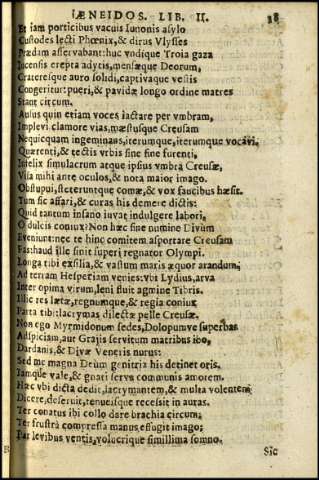 ÆNEIDOS. LIB. II. 28
Et iam porticibus vacuis Iunonis asylo
Custodes lecti Phœnix, & dirus Vlysses
Prædam asservabant: huc vndique Troia gaza
Incensis erepta adytis, mensæque Deorum,
Crateresque auro solidi, captivaque vestis
Congeritur: pueri, & pavidæ longo ordine matres
Stant circum.
Ausus quin etiam voces iactare per vmbram,
Implevi clamore vias, mæstusque Creusam
Nequicquam ingeminans, iterumque, iterumque vocavi.
Quærenti, & tectis vrbis sine fine furenti,
Infelix simulacrum atque ipsius vmbra Creusæ,
Visa mihi ante oculos, & nota maior imago.
Obstupui, steteruntque comæ, & vox faucibus hæsit.
Tum sic affari, & curas his demere dictis:
Quid tantum insano iuvat indulgere labori,
O dulcis coniux? Non hæc sine numine Divûm
Eveniunt: nec te hinc comitem asportare Creusam
Fas: haud ille sinit superi regnator Olympi.
Longa tibi exilia, & vastum maris æquor arandum;
Ad terram Hesperiam venies: vbi Lydius, arva
Inter opima virum, leni fluit agmine Tibris.
Illic res lætæ, regnumque, & regia coniux
Parta tibi: lacrymas dilectæ pelle Creusæ.
Non ego Myrmidonum sedes, Dolopumve superbas
Adspiciam, aut Grajis servitum matribus ibo,
Dardanis, & Divæ Veneris nurus:
Sed me magna Deûm genitrix his detinet oris.
Iamque vale, & gnati serva communis amorem.
Hæc vbi dicta dedit, lacrymantem, & multa volentem
Dicere, deseruit, tenuesque recessit in auras.
Ter conatus ibi collo dare brachia circum;
Ter frustrà compressa manus effugit imago;
Par levibus ventis, volucrique simillima somno.
Sic